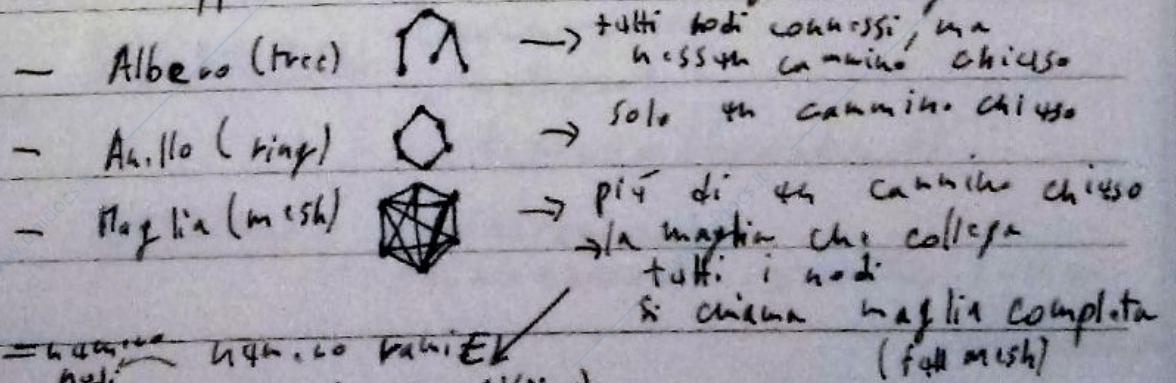 — Albero (tree) → tutti nodi connessi, ma
nessun cammino chiuso
— Anello (ring) → solo un cammino chiuso
— Maglia (mesh) → più di un cammino chiuso
→ la maglia che collega
tutti i nodi
si chiama maglia completa
(full mesh)
= numero numero rami
nodi